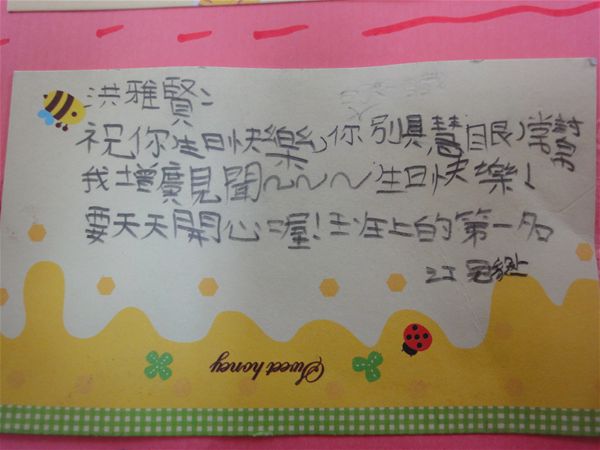 洪雅賢:
祝你生日快樂,你別具慧眼,常幫
我增廣見聞~~~生日快樂!
要天天開心喔!班上的第一名
江
Sweet honey